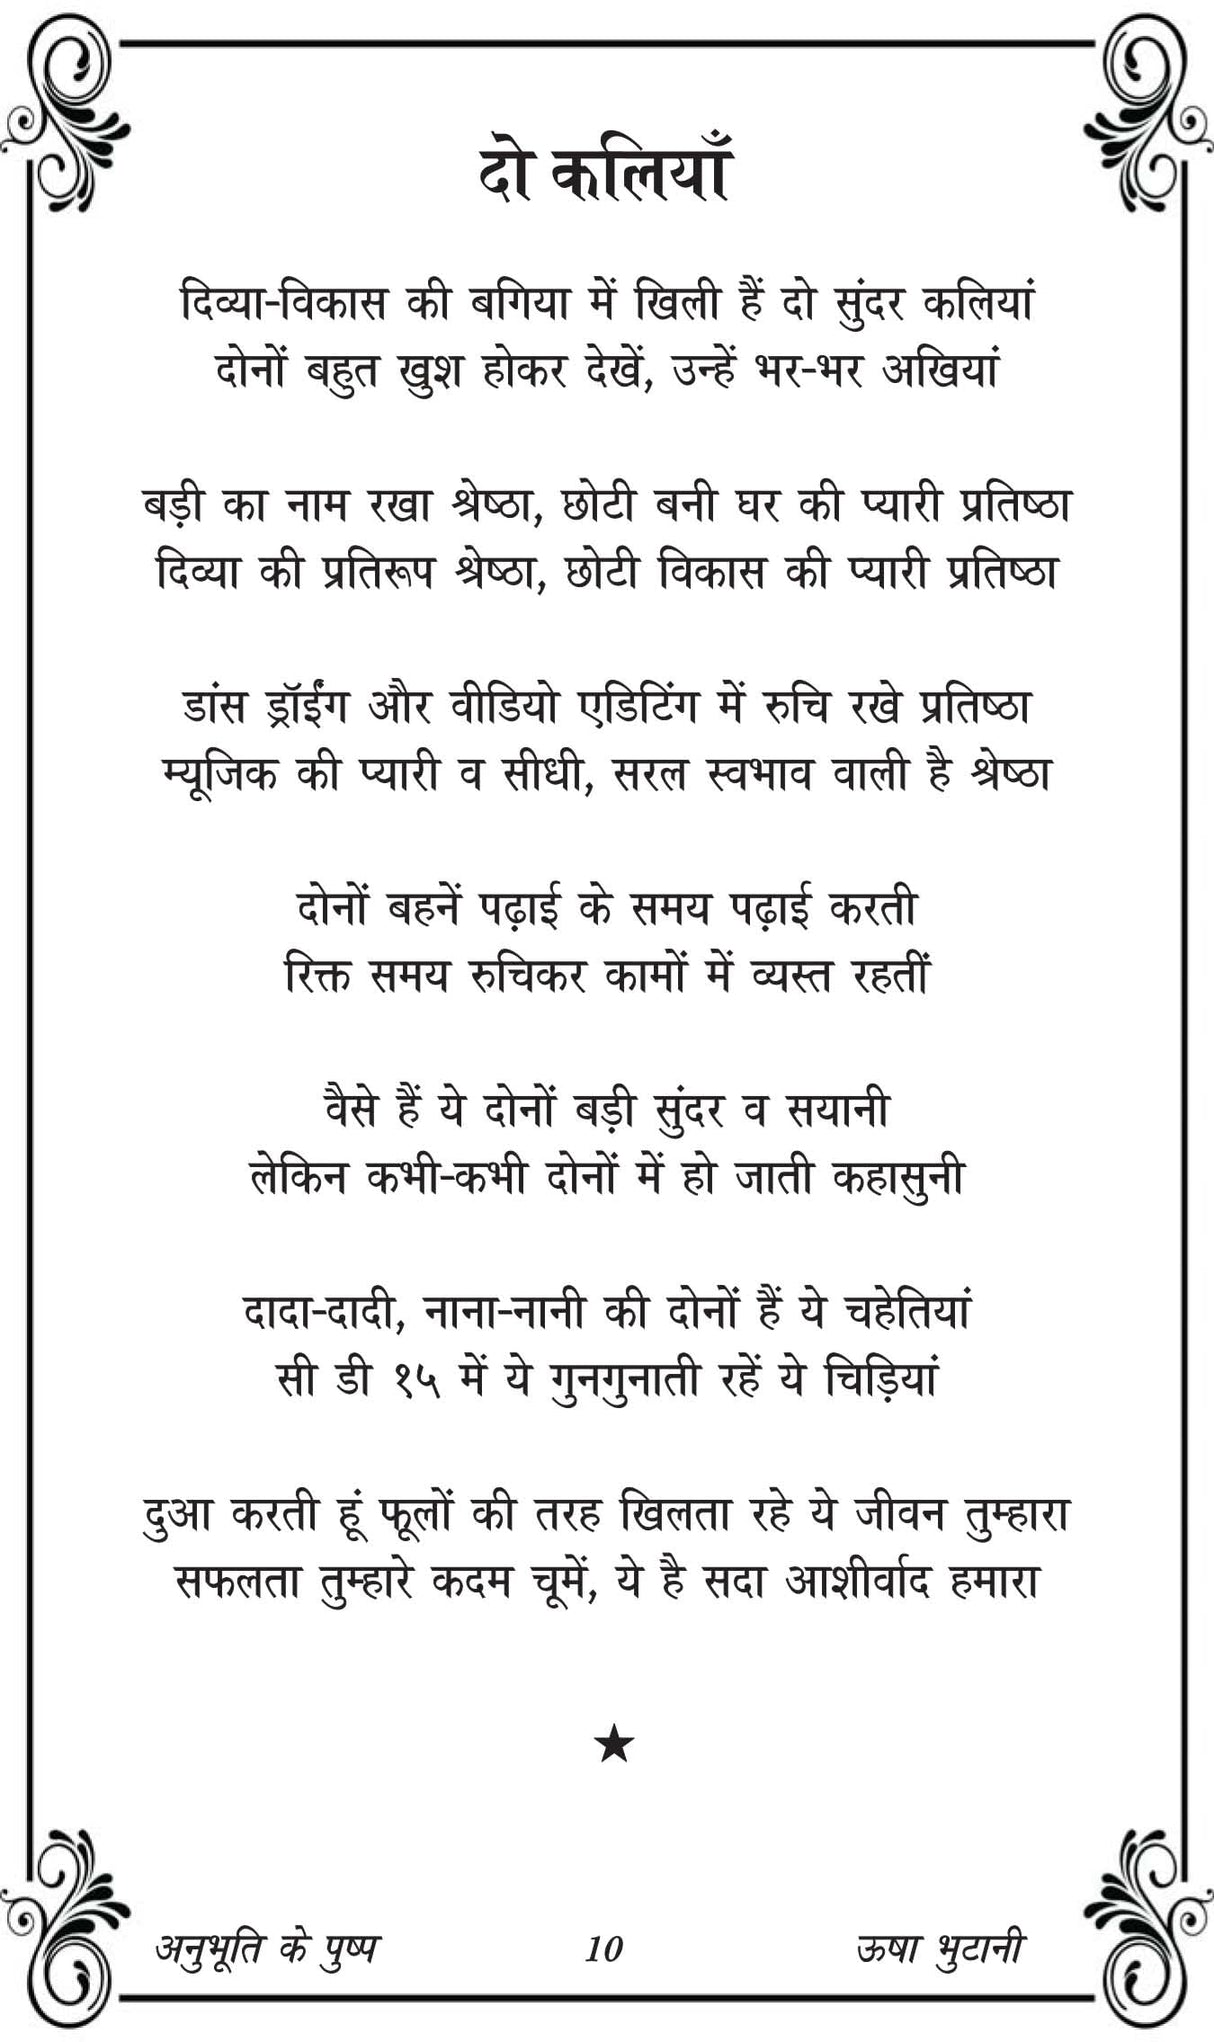 दो कलियाँ
दिव्या-विकास की बगिया में खिली हैं दो सुंदर कलियां
दोनों बहुत खुश होकर देखें, उन्हें भर-भर अखियां
बड़ी का नाम रखा श्रेष्ठा, छोटी बनी घर की प्यारी प्रतिष्ठा
दिव्या की प्रतिरूप श्रेष्ठा, छोटी विकास की प्यारी प्रतिष्ठा
डांस ड्रॉईंग और वीडियो एडिटिंग में रुचि रखे प्रतिष्ठा
म्यूजिक की प्यारी व सीधी, सरल स्वभाव वाली है श्रेष्ठा
दोनों बहनें पढ़ाई के समय पढ़ाई करती
रिक्त समय रुचिकर कामों में व्यस्त रहतीं
वैसे हैं ये दोनों बड़ी सुंदर व सयानी
लेकिन कभी-कभी दोनों में हो जाती कहासुनी
दादा-दादी, नाना-नानी की दोनों हैं ये चहेतियां
सी डी १५ में ये गुनगुनाती रहें ये चिड़ियां
दुआ करती हूं फूलों की तरह खिलता रहे ये जीवन तुम्हारा
सफलता तुम्हारे कदम चूमें, ये है सदा आशीर्वाद हमारा
★
अनुभूति के पुष्प 10 ऊषा भुटानी